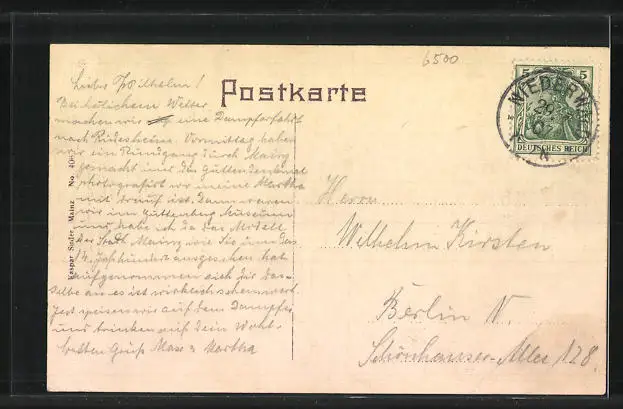 6500
Postkarte
5 5
DEUTSCHES REICH
NIEDERW
Lieber Wilhelm!
Bei köstlichem Wetter
machen wir eine Dampferfahrt
nach Rüdesheim. Vormittag haben
wir ein Rundgang durch Mainz
gemacht und das Guttenbdenkmal
photografirt wo meine Martha
mit drauf ist. Dann waren
wir im Guttenberg Museum
und habe ich da das Modell
der Stadt Mainz wie Sie im
14. Jahrhundert ausgesehen hat
aufgenommen sieh dir das
selbe an es ist wirklich sehenswert.
Jezt speisen wir auf dem Dampfer
und trinken auf dein Wohl.
Gruß Max u Martha
Mainz No.
Herrn
Wilhelm Kirsten
Berlin N.
Schönhauser-Allee 128.